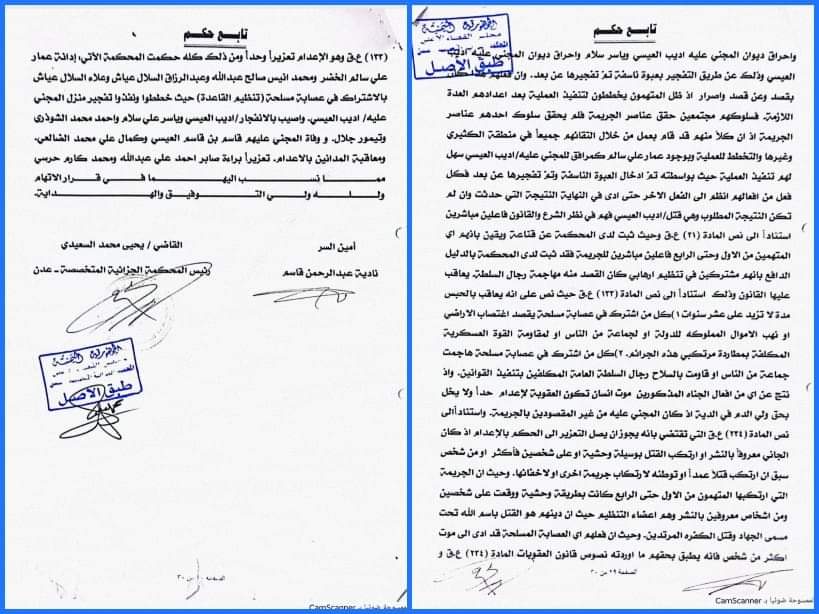 تابع حكم
واحراق ديوان المجني عليه اديب العيسي وياسر سلام واحراق ديوان المجني عليه اديب
العيسي وذلك عن طريق التفجير بعبوة ناسفة تم تفجيرها عن بعد. وان فعلهم هذا كان
بقصد وعن قصد واصرار اذ ظل المتهمون يخططون لتنفيذ العملية بعد اعدادهم العدة
اللازمة. فسلوكهم مجتمعين حقق عناصر الجريمة فلم يحقق سلوك احدهم عناصر
الجريمة اذ ان كلاً منهم قد قام بعمل من خلال التقائهم جميعاً في منطقة الكثيري
وغيرها والتخطط للعملية وبوجود عمار علي سالم كمرافق للمجني عليه/اديب العيسي سهل
لهم تنفيذ العملية حيث بواسطته تم ادخال العبوة الناسفة وتم تفجيرها عن بعد فكل
فعل من افعالهم انظم الى الفعل الاخر حتى ادى في النهاية النتيجة التي حدثت وان لم
تكن النتيجة المطلوب وهي قتل/اديب العيسي فهم في نظر الشرع والقانون فاعلين مباشرين
استناداً الى نص المادة (٢١) ع.ق وحيث ثبت لدى المحكمة عن قناعة ويقين بانهم اي
المتهمين من الاول وحتى الرابع فاعلين مباشرين للجريمة فقد ثبت لدى المحكمة بالدليل
الدافع بانهم مشتركين في تنظيم ارهابي كان القصد منه مهاجمة رجال السلطة. يعاقب
عليها القانون وذلك استناداً الى نص المادة (١٣٣) ع.ق حيث نص على انه يعاقب بالحبس
مدة لا تزيد على عشر سنوات ١)كل من اشترك في عصابة مسلحة يقصد اغتصاب الاراضي
او نهب الاموال المملوكه للدولة او لجماعة من الناس او لمقاومة القوة العسكرية
المكلفة بمطاردة مرتكبي هذه الجرائم. ٢)كل من اشترك في عصابة مسلحة هاجمت
جماعة من الناس او قاومت بالسلاح رجال السلطة العامة المكلفين بتنفيذ القوانين. واذ
نتج عن اي من افعال الجناه المذكورين موت انسان تكون العقوبة لإعدام حداً ولا يخل
بحق ولي الدم في الدية اذ كان المجني عليه من غير المقصودين بالجريمة. واستناداًالى
نص المادة (٢٣٤) ع.ق التي تقتضي بانه يجوز ان يصل التعزير الى الحكم بالإعدام اذ كان
الجاني معروفاً بالنشر او ارتكب القتل بوسيلة وحشية او على شخصين فأكثر او من شخص
سبق ان ارتكب قتلاً عمداً او توطئه لارتكاب جريمة اخرى او لاخفائها. وحيث ان الجريمة
التي ارتكبها المتهمون من الاول حتى الرابع كانت بطريقة وحشية ووقعت على شخصين
ومن اشخاص معروفين بالنشر وهم اعضاء التنظيم حيث ان دينهم هو القتل باسم الله تحت
مسمى الجهاد وقتل الكفره المرتدين. وحيث ان فعلهم اي العصابة المسلحة قد ادى الى موت
اكثر من شخص فانه يطبق بحقهم ما اوردته نصوص قانون العقوبات المادة (٢٣٤) ع.ق و
الصفحة ٢٩ من ٣٠
الجمهورية اليمنية
مجلس القضاء الأعلى
طبق الاصل
الممسوحة ضوئيا بـ CamScanner
تابع حكم
(١٣٣) ع.ق وهو الإعدام تعزيراً وحداً ومن ذلك كله حكمت المحكمة الآتي: إدانة عمار
علي سالم الخضر ومحمد انيس صالح عبدالله وعبدالرزاق السلال عياش وعلاء السلال عياش
بالاشتراك في عصابة مسلحة (تنظيم القاعدة) حيث خططوا ونفذوا تفجير منزل المجني
عليه/ اديب العيسي. واصيب بالانفجار/اديب العيسي وياسر علي سلام واحمد محمد الشوذري
وتيمور جلال. و وفاة المجني عليهم قاسم بن قاسم العيسي وكمال علي محمد الضالعي.
ومعاقبة المدانين بالاعدام. تعزيراً براءة صابر احمد علي عبدالله ومحمد كارم حرسي
ممـــا نســـب اليهـــما فـــي قـــرار الاتهام
ولـــلـه ولـي التـــوفيـق والهـــدايـة.
أمين السر
القاضي/ يحيى محمد السعيدي
نادية عبدالرحمن قاسم
رئيس المحكمة الجزائية المتخصصة ــ عدن
الجمهورية اليمنية
طبق الاصل
الصفحة ٣٠ من ٣٠
الممسوحة ضوئيا بـ CamScanner